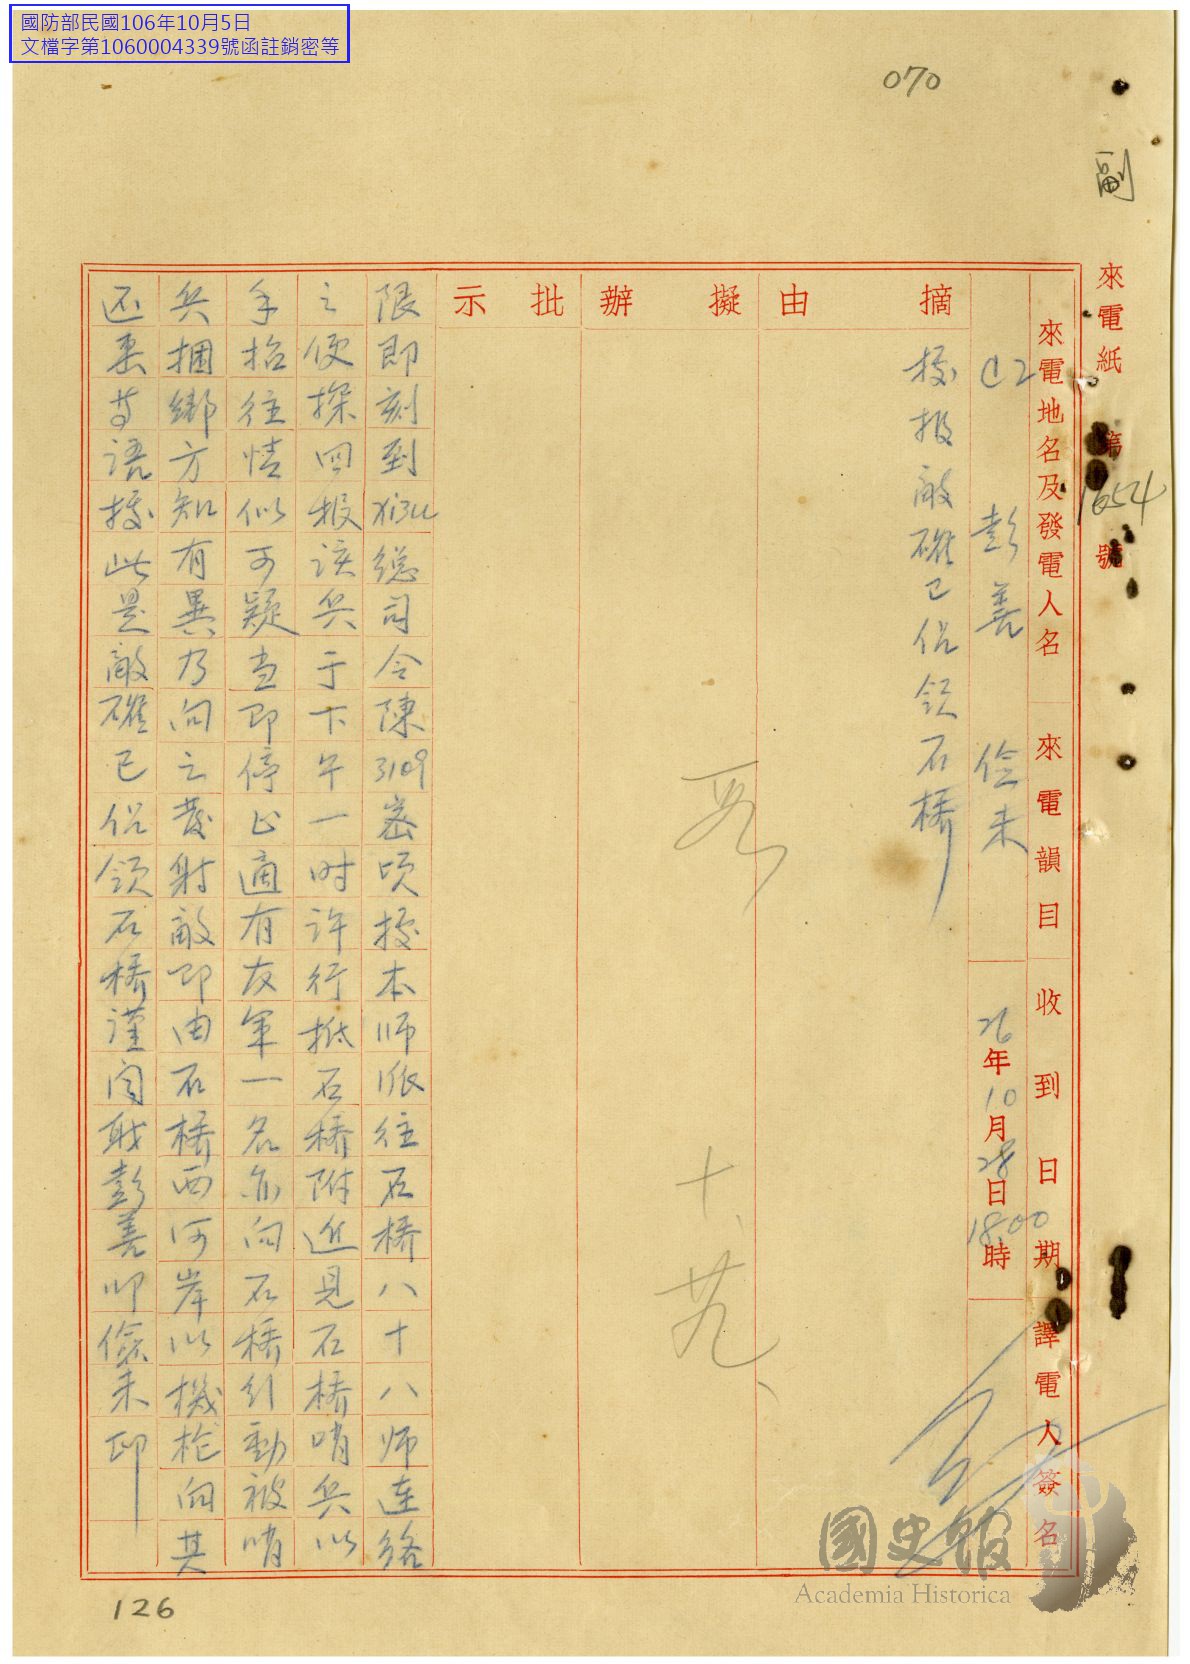 國防部民國106年10月5日
文檔字第1060004339號函註銷密等
070
副
來電紙 第1654號
來電地名及發電人名 來電韻目 收到日期 譯電人簽名
C2 彭善 儉未 26年10月28日18.00時
摘由
據报敵確已佔领石橋
擬辦
批示
十、廿九、
限即刻到 总司令陳3109密頃据本师派往石橋八十八师連络
之便探回报该兵于下午一时许行抵石橋附近見石橋哨兵以
手招往情似可疑当即停止適有友軍一名亦向石橋行動被哨
兵捆綁方知有異乃向之發射敵即由石橋西河岸以機枪向其
还击等语据此是敵確已佔领石橋谨闻职彭善叩儉未印
126
國史館
Academia Historica